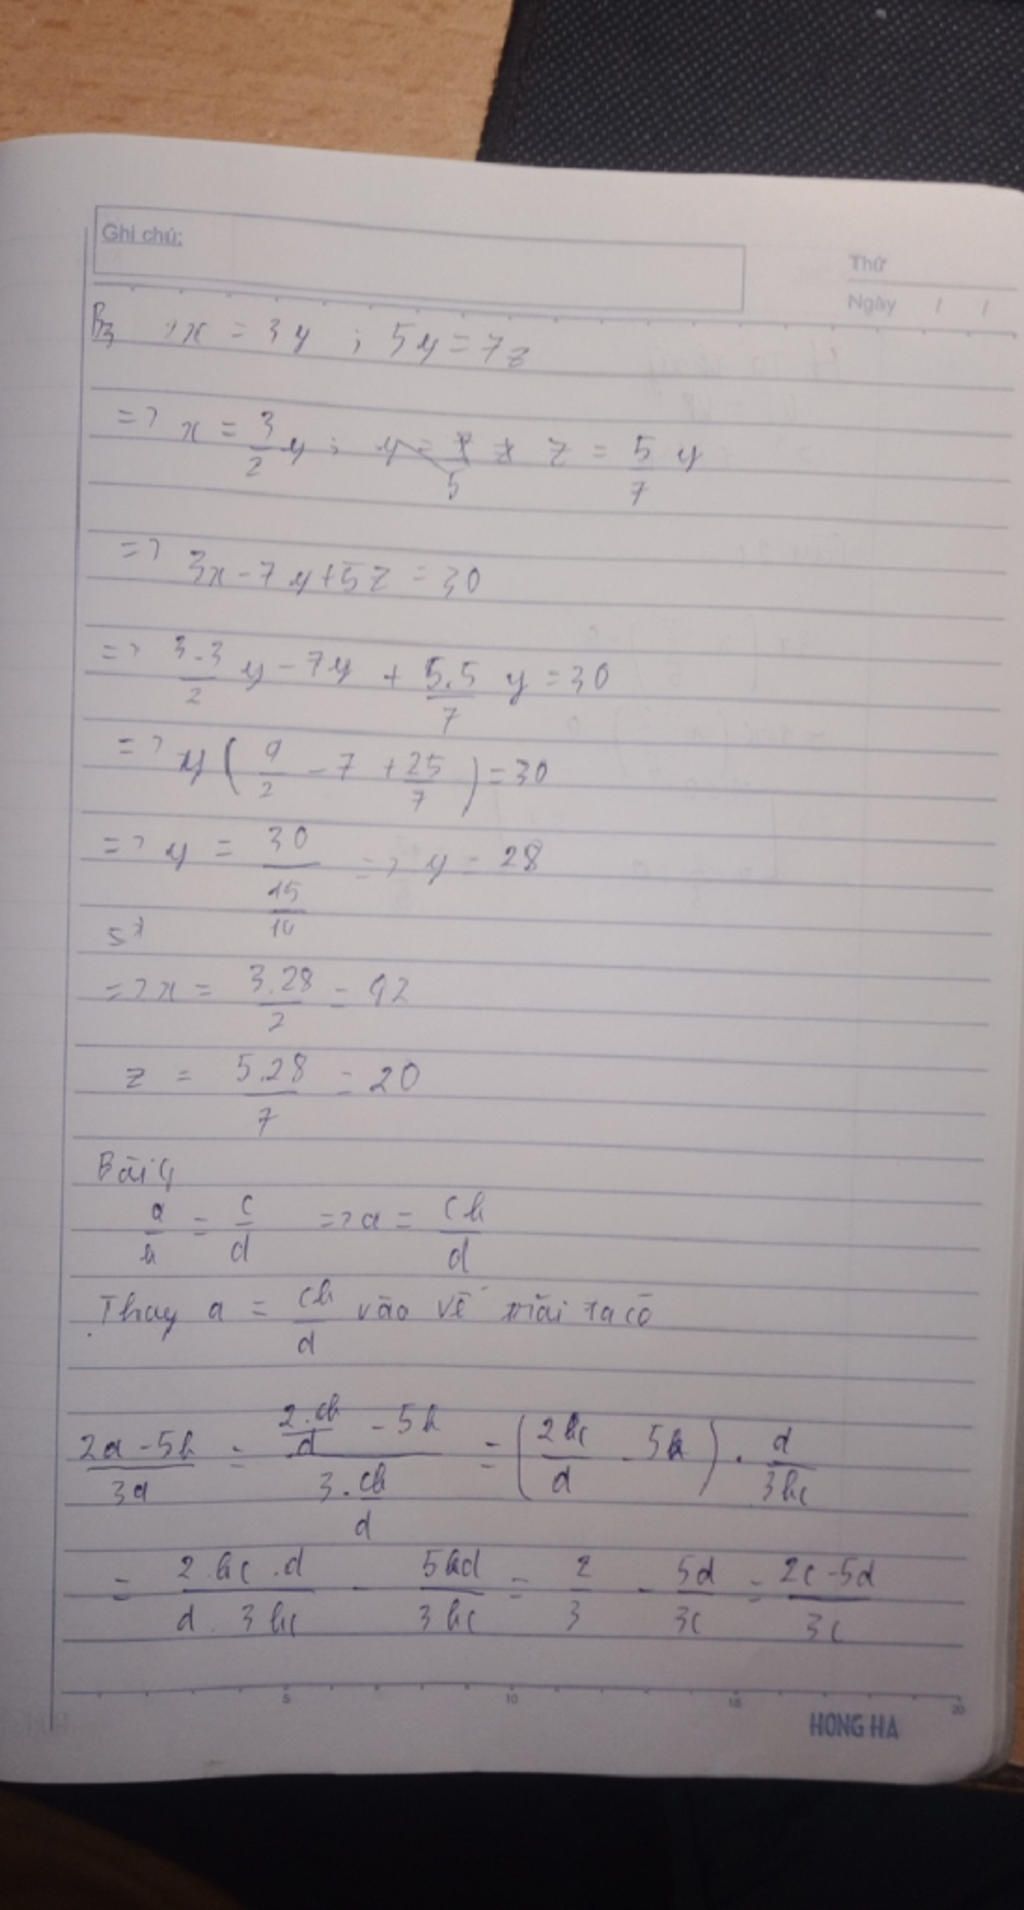 Ghi chú:
Thứ
Ngày / /
B3 2x = 3y ; 5y = 7z
=> x = 3/2 y ; z = 5/7 y
=> 3x - 7y + 5z = 30
=> 3.3/2 y - 7y + 5.5/7 y = 30
=> y ( 9/2 - 7 + 25/7 ) = 30
=> y = 30/(15/14) => y = 28
=> x = 3.28/2 = 42
z = 5.28/7 = 20
Bài 4
a/b = c/d => a = cb/d
Thay a = cb/d vào vế trái ta có
(2a - 5b)/3a = (2.cb/d - 5b)/(3.cb/d) = (2bc/d - 5b) . d/3bc
= 2.bc.d/d.3bc - 5bd/3bc = 2/3 - 5d/3c = (2c - 5d)/3c
5 10 15 20
HONG HA